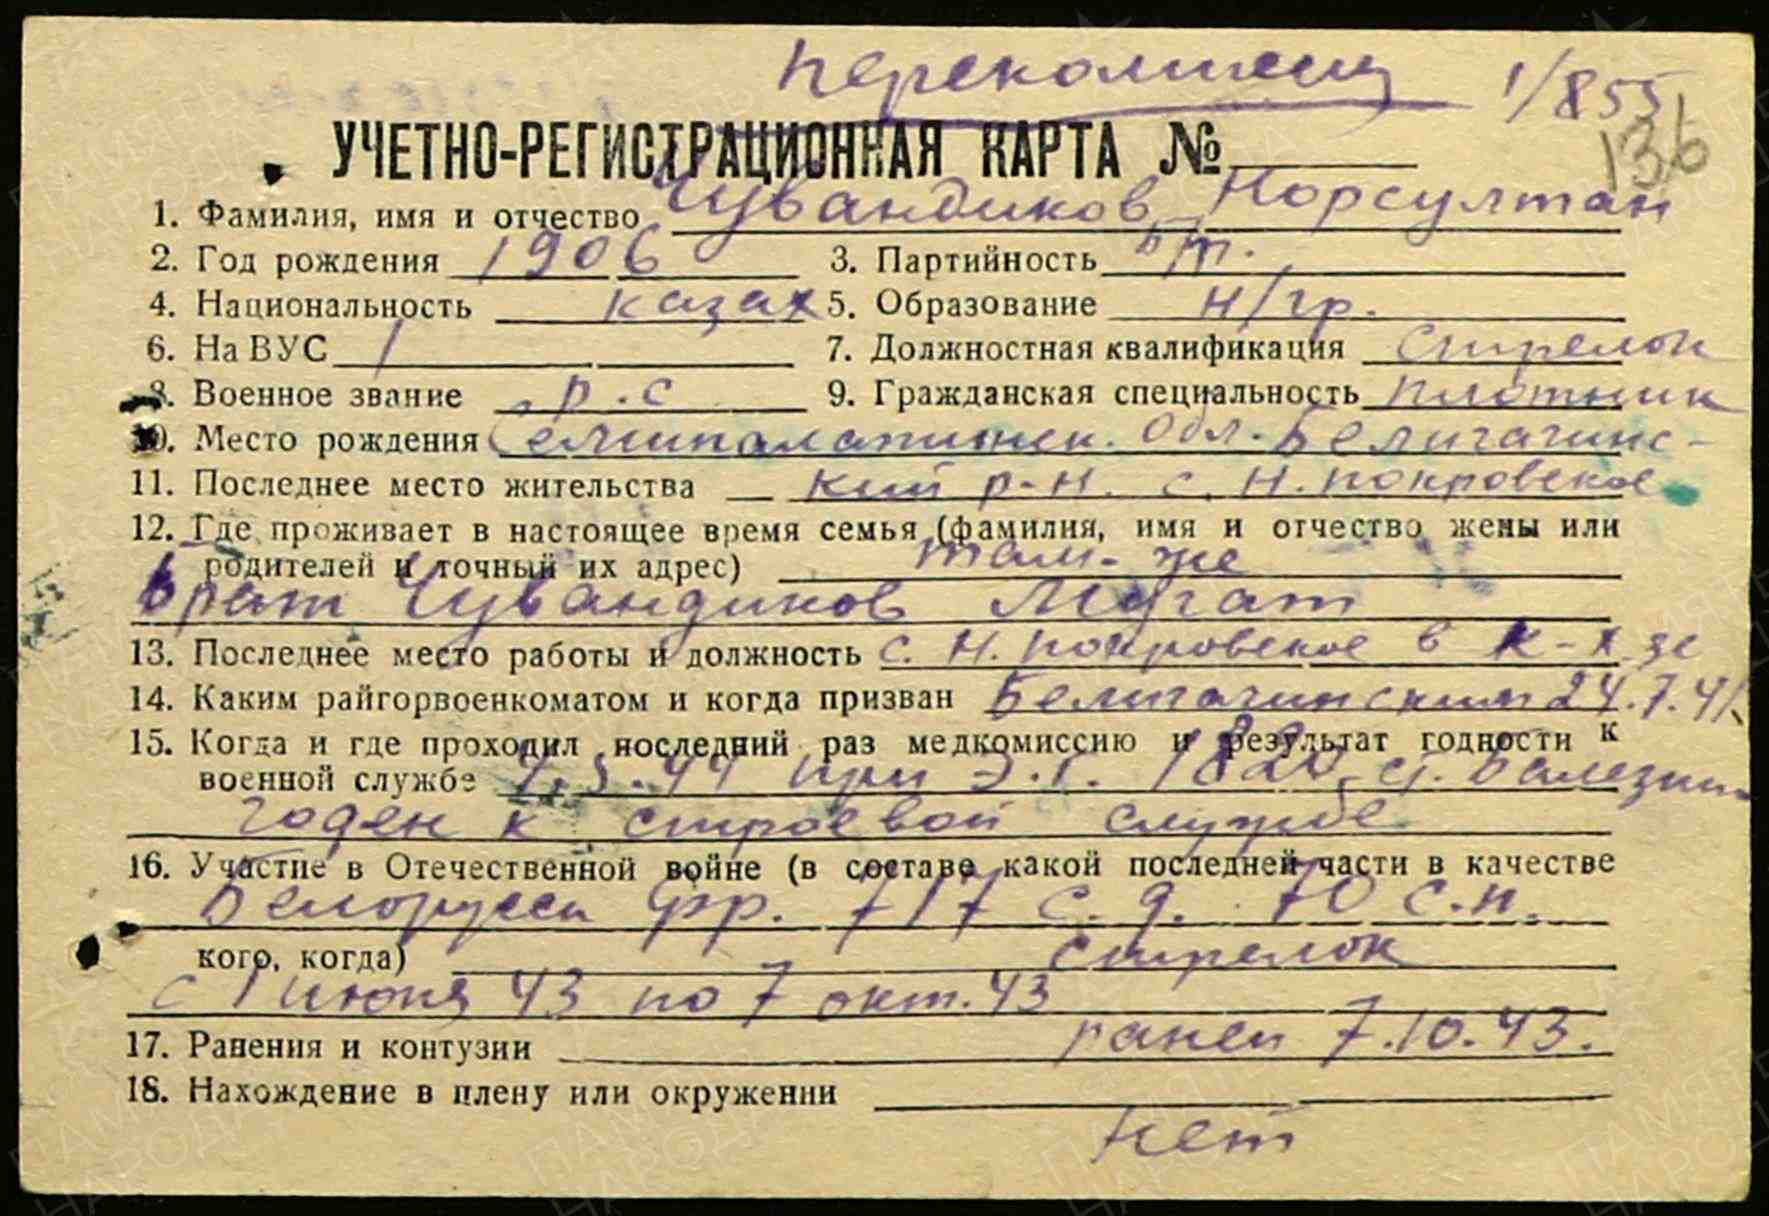 Перекомисси 1/855
136
УЧЕТНО-РЕГИСТРАЦИОННАЯ КАРТА №
1. Фамилия, имя и отчество Чувандиков Норсултан
2. Год рождения 1906 3. Партийность б/п.
4. Национальность казах 5. Образование н/гр.
6. На ВУС 1 7. Должностная квалификация Стрелок
8. Военное звание р.с 9. Гражданская специальность плотник
10. Место рождения Семипалатинск. Обл. Бельагачинс-
11. Последнее место жительства кий р-н. с. Н. покровское
12. Где проживает в настоящее время семья (фамилия, имя и отчество жены или
родителей и точный их адрес) там-же
брат Чувандиков Мугат
13. Последнее место работы и должность с. Н. покровское в к-х зе
14. Каким райгорвоенкоматом и когда призван Бельагачинским 24.7.41
15. Когда и где проходил последний раз медкомиссию и результат годности к
военной службе при Э.Г. ст. болезни
годен к строевой службе
16. Участие в Отечественной войне (в составе какой последней части в качестве
Белорусси фр. 717 с.д. 70 с.п.
кого, когда) стрелок
с 1 июня 43 по 7 окт. 43
17. Ранения и контузии ранен 7.10.43.
18. Нахождение в плену или окружении
нет